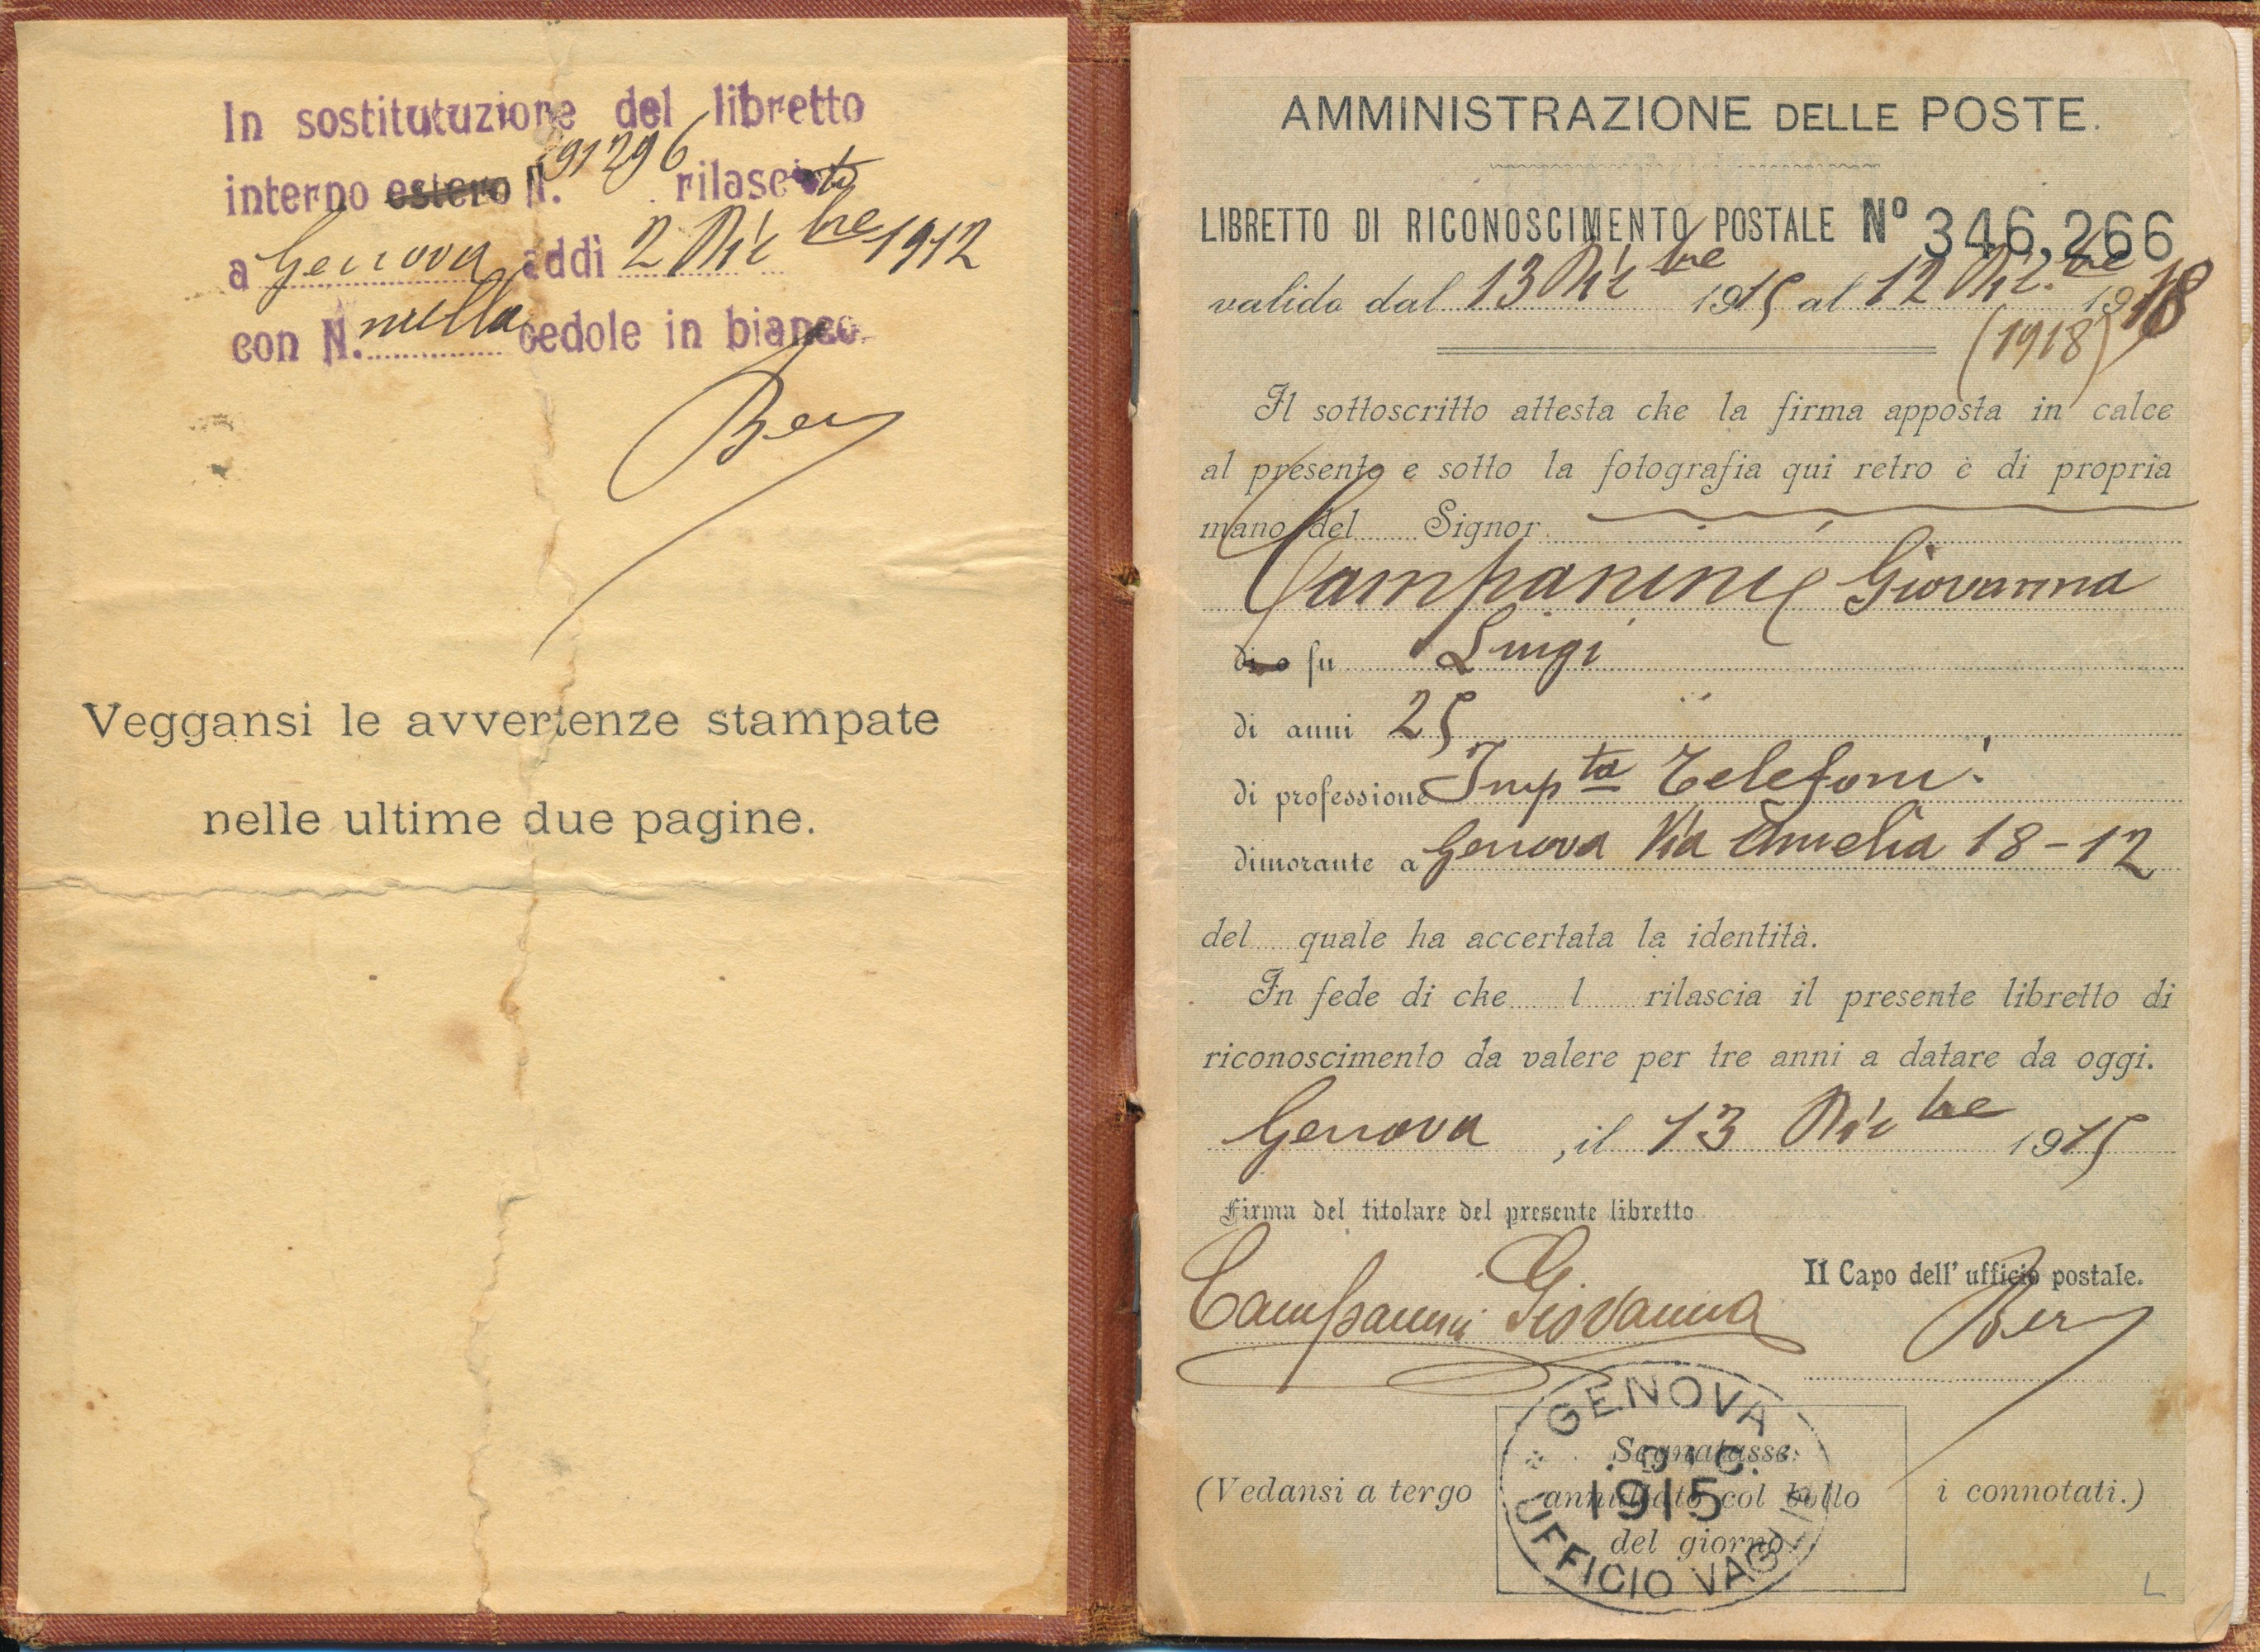 In sostitutuzione del libretto
interno estero N. 91296 rilasciato
a Genova addì 2 Dicbre 1912
con N. nulla cedole in bianco.
Veggansi le avvertenze stampate
nelle ultime due pagine.
AMMINISTRAZIONE DELLE POSTE.
LIBRETTO DI RICONOSCIMENTO POSTALE Nº 346,266
valido dal 13 Dicbre 1915 al 12 Dic.bre 1918
(1918)
Il sottoscritto attesta che la firma apposta in calce
al presente e sotto la fotografia qui retro è di propria
mano del Signor
Campanini Giovanna
di o fu Luigi
di anni 25
di professione Impta Telefoni
dimorante a Genova Via Amelia 18-12
del quale ha accertata la identità.
In fede di che l rilascia il presente libretto di
riconoscimento da valere per tre anni a datare da oggi.
Genova, il 13 Dicbre 1915
Firma del titolare del presente libretto
Il Capo dell' ufficio postale.
Campanini Giovanna
GENOVA
Segnatasse
(Vedansi a tergo annullato col bollo i connotati.)
1915
del giorno
UFFICIO VAGLIA
L